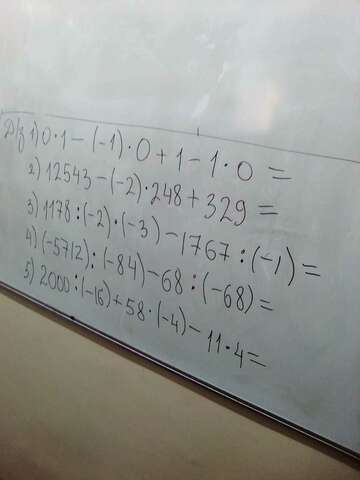 Д/з 1) 0·1-(-1)·0+1-1·0=
2) 12543-(-2)·248+329=
3) 1178:(-2)·(-3)-1767:(-1)=
4) (-5712):(-84)-68:(-68)=
5) 2000:(-16)+58·(-4)-11·4=